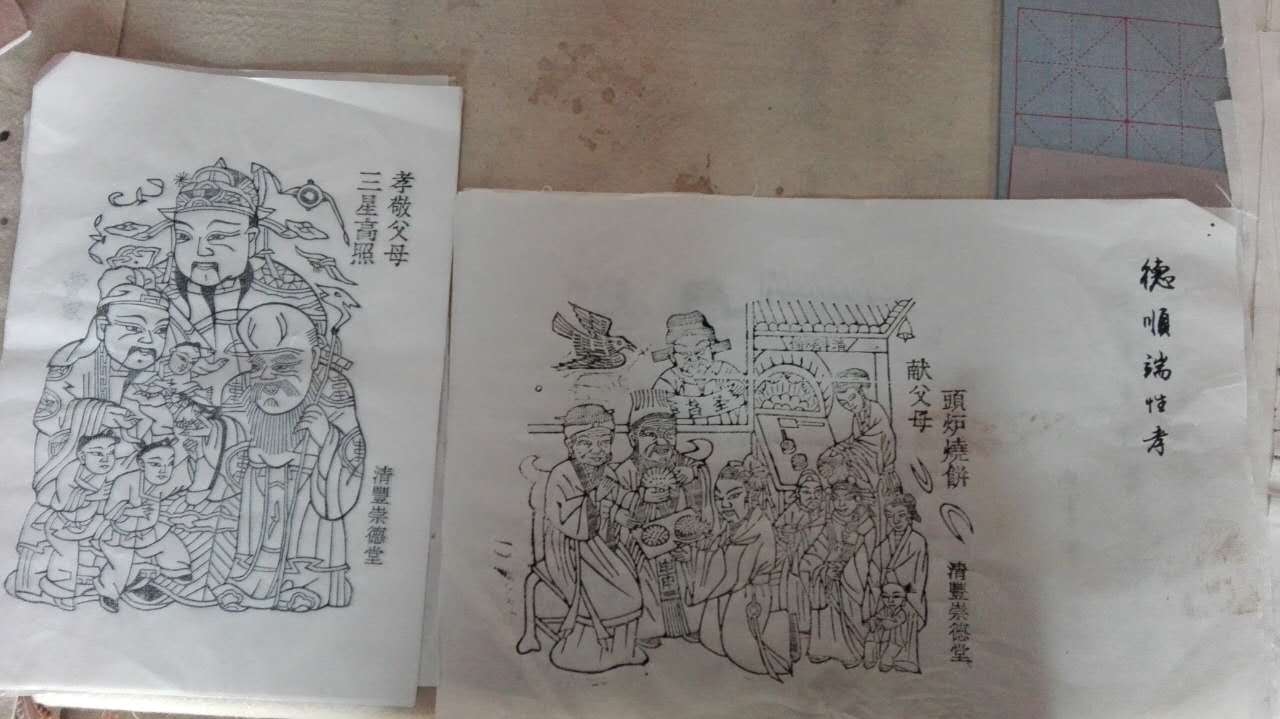 孝敬父母
三星高照
清豐崇德堂
頭炉燒餅
献父母
清豐崇德堂
德順端性孝